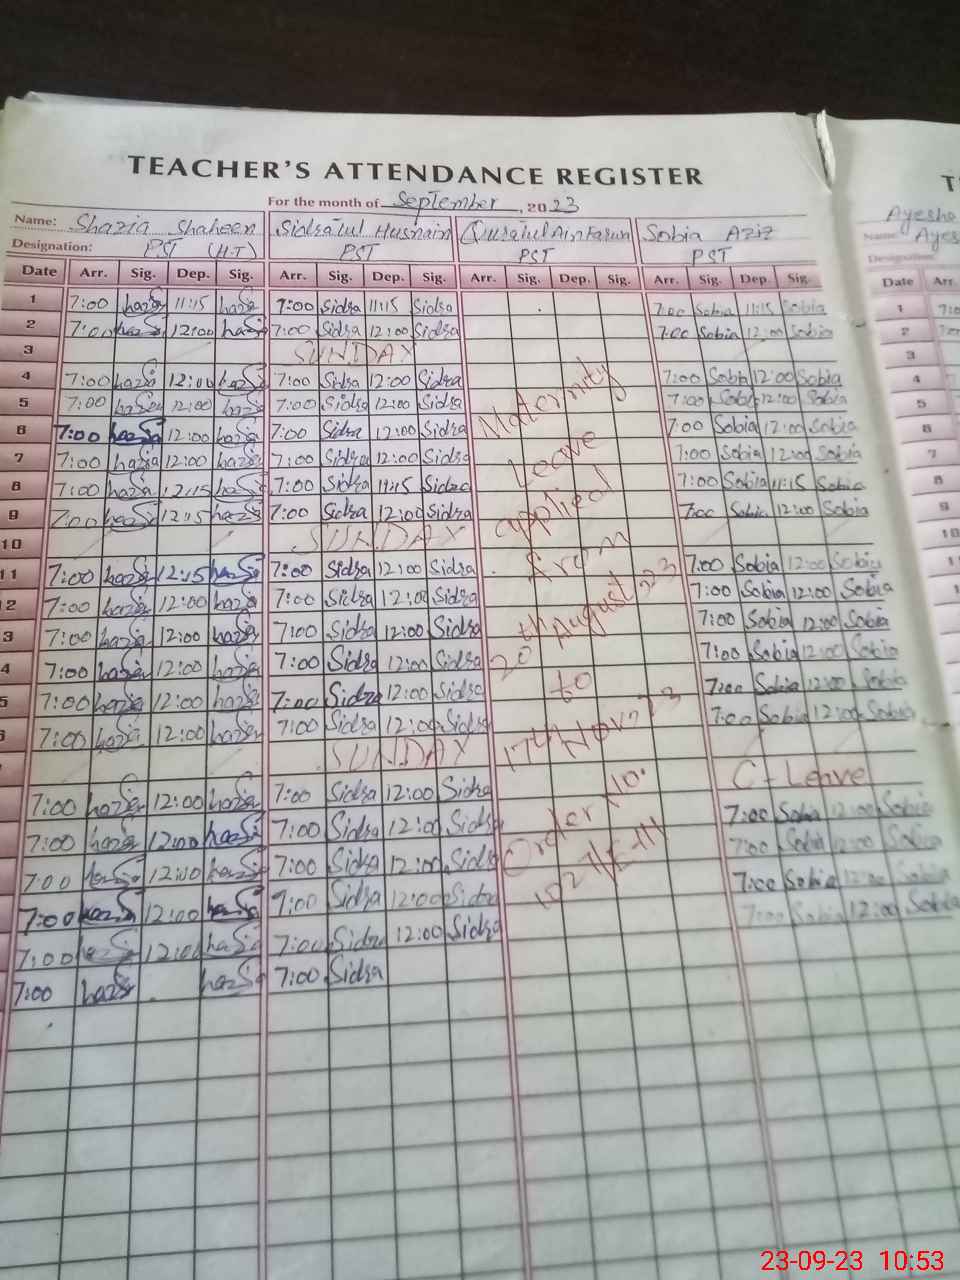 TEACHER'S ATTENDANCE REGISTER
For the month of September, 2023
Name: Shazia Shaheen Sidratul Husnain Quratul Ain Sobia Aziz
Designation: PST (H.T) PST PST PST
Date Arr. Sig. Dep. Sig. Arr. Sig. Dep. Sig. Arr. Sig. Dep. Sig. Arr. Sig. Dep. Sig.
1 7:00 11:15 7:00 Sidra 11:15 Sidra 7:00 Sobia 11:15 Sobia
2 7:00 12:00 7:00 Sidra 12:00 Sidra 7:00 Sobia 12:00 Sobia
3 SUNDAY
4 7:00 12:00 7:00 Sidra 12:00 Sidra 7:00 Sobia 12:00 Sobia
5 7:00 12:00 7:00 Sidra 12:00 Sidra 7:00 Sobia 12:00 Sobia
6 7:00 12:00 7:00 Sidra 12:00 Sidra 7:00 Sobia 12:00 Sobia
7 7:00 12:00 7:00 Sidra 12:00 Sidra 7:00 Sobia 12:00 Sobia
8 7:00 12:15 7:00 Sidra 11:15 Sidra 7:00 Sobia 11:15 Sobia
9 7:00 12:15 7:00 Sidra 12:00 Sidra 7:00 Sobia 12:00 Sobia
10 SUNDAY
11 7:00 12:15 7:00 Sidra 12:00 Sidra 7:00 Sobia 12:00 Sobia
2 7:00 12:00 7:00 Sidra 12:00 Sidra 7:00 Sobia 12:00 Sobia
3 7:00 12:00 7:00 Sidra 12:00 Sidra 7:00 Sobia 12:00 Sobia
4 7:00 12:00 7:00 Sidra 12:00 Sidra 7:00 Sobia 12:00 Sobia
5 7:00 12:00 7:00 Sidra 12:00 Sidra 7:00 Sobia 12:00 Sobia
6 7:00 12:00 7:00 Sidra 12:00 Sidra 7:00 Sobia 12:00 Sobia
SUNDAY
7:00 12:00 7:00 Sidra 12:00 Sidra C-Leave
7:00 12:00 7:00 Sidra 12:00 Sidra 7:00 Sobia 12:00 Sobia
7:00 12:00 7:00 Sidra 12:00 Sidra 7:00 Sobia 12:00 Sobia
7:00 12:00 7:00 Sidra 12:00 Sidra 7:00 Sobia 12:00 Sobia
7:00 12:00 7:00 Sidra 12:00 Sidra 7:00 Sobia 12:00 Sobia
7:00 7:00 Sidra
Maternity
Leave
applied
from
20th August 23
to
17th Nov 23
Order No.
Ayesha
Name: Ayes
Designation
Date Arr.
1
2
3
4
5
6
7
8
9
10
23-09-23 10:53